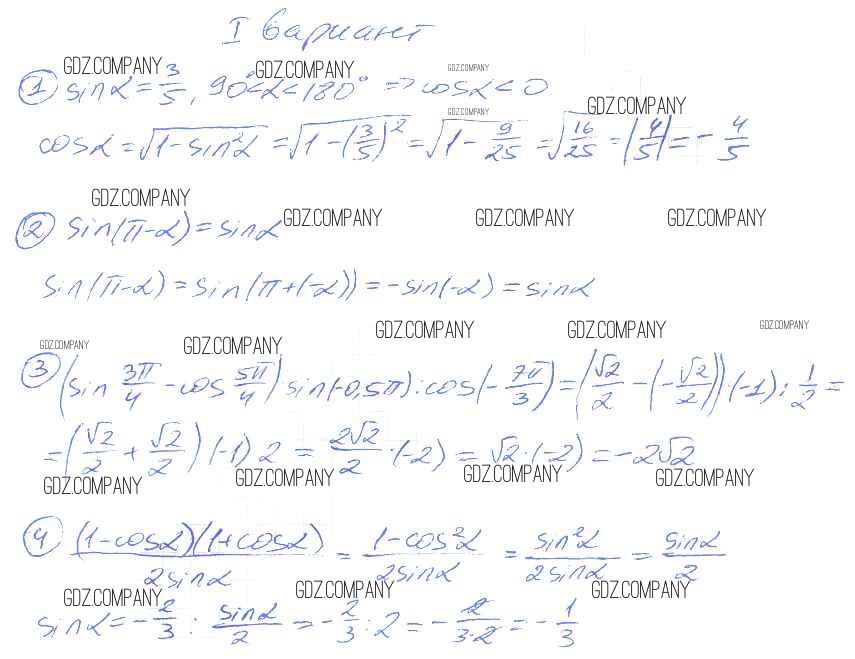 I вариант
GDZ.COMPANY GDZ.COMPANY GDZ.COMPANY
① sinα = 3/5, 90°<α<180° => cosα < 0
GDZ.COMPANY GDZ.COMPANY
cosα = √(1-sin²α) = √(1-(3/5)²) = √(1-9/25) = √(16/25) = |4/5| = -4/5
GDZ.COMPANY
② sin(π-α) = sinα
GDZ.COMPANY GDZ.COMPANY GDZ.COMPANY
sin(π-α) = sin(π+(-α)) = -sin(-α) = sinα
GDZ.COMPANY GDZ.COMPANY GDZ.COMPANY GDZ.COMPANY GDZ.COMPANY
③ (sin 3π/4 - cos 5π/4) sin(-0,5π) : cos(-7π/3) = (√2/2 - (-√2/2)) (-1) : 1/2 =
= (√2/2 + √2/2) (-1) 2 = 2√2/2 · (-2) = √2 · (-2) = -2√2
GDZ.COMPANY GDZ.COMPANY GDZ.COMPANY GDZ.COMPANY
④ (1-cosα)(1+cosα)/2sinα = 1-cos²α/2sinα = sin²α/2sinα = sinα/2
GDZ.COMPANY GDZ.COMPANY GDZ.COMPANY
sinα = -2/3 : sinα/2 = -2/3 : 2 = -2/3·2 = -1/3